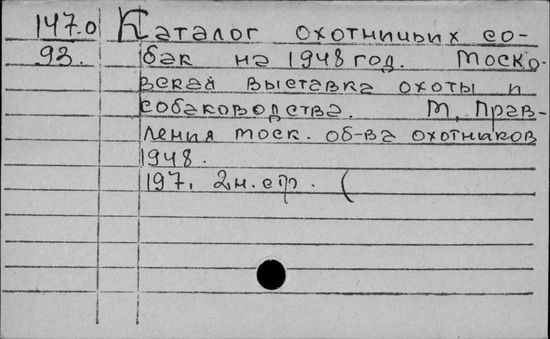 147.0 Каталог охотничьих со-
93. бак на 1948 год. Моско-
вская выставка охоты и
собаководства. М, Прав-
ления Моск. об-ва охотников
1948.
197, 2н. стр. (